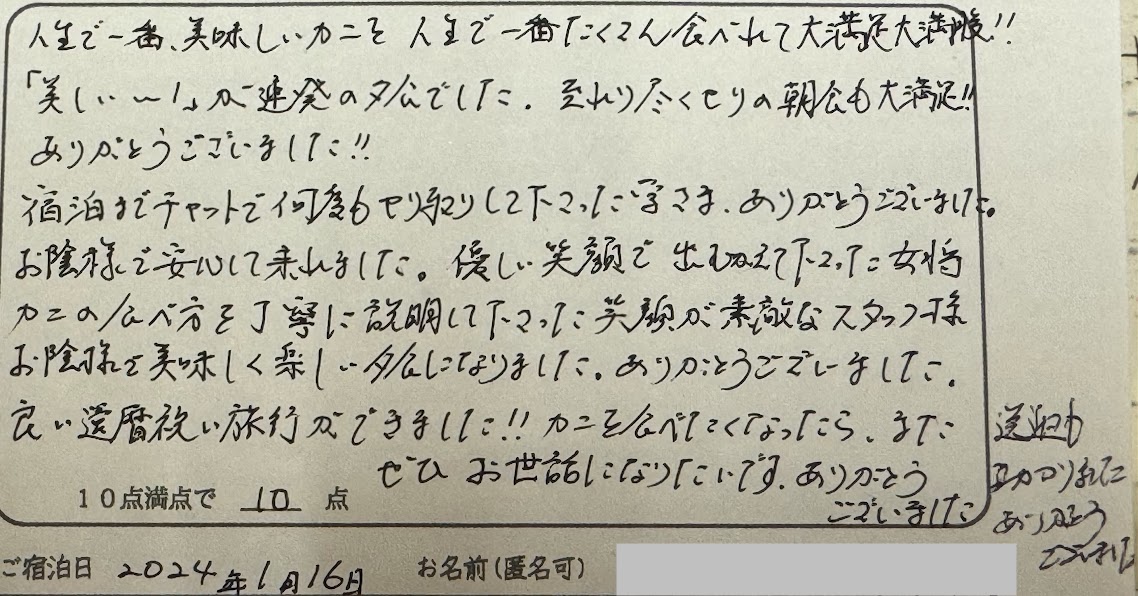 人生で一番、美味しいカニを 人生で一番たくさん食べれて大満足大満腹!!
「美しい〜!」が連発の夕食でした。至れり尽くせりの朝食も大満足!!
ありがとうございました!!
宿泊までチャットで何度もやり取りして下さった さま、ありがとうございました。
お陰様で安心して来れました。優しい笑顔で出むかえて下さった女将
カニの食べ方を丁寧に説明して下さった笑顔が素敵なスタッフ様
お陰様で美味しく楽しい夕食になりました。ありがとうございました。
良い還暦祝い旅行ができました!!カニを食べたくなったら、また
ぜひ お世話になりたいです。ありがとう
ございました
10点満点で 10 点
送迎も
助かりました
ありがとう
ございました
ご宿泊日 2024年1月16日 お名前(匿名可)